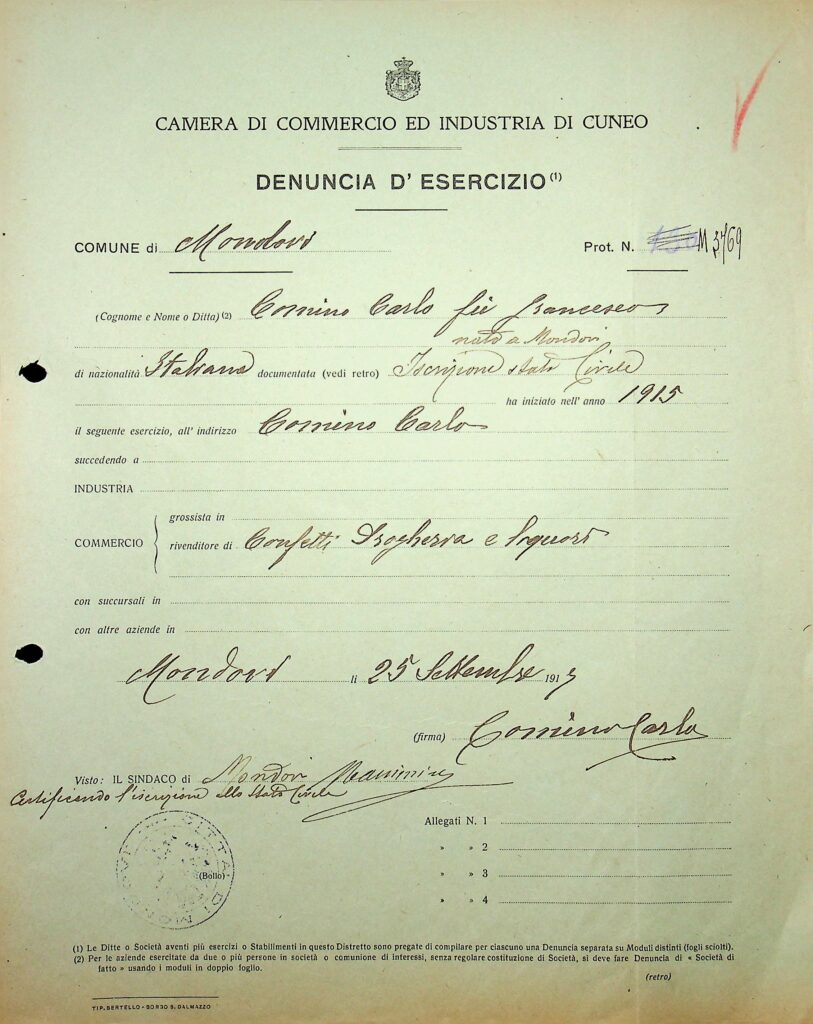 CAMERA DI COMMERCIO ED INDUSTRIA DI CUNEO
DENUNCIA D' ESERCIZIO (1)
COMUNE di Mondovì Prot. N. 150 M 3769
(Cognome e Nome o Ditta) (2) Comino Carlo fu Francesco
nato a Mondovì
di nazionalità Italiana documentata (vedi retro) Iscrizione stato Civile
ha iniziato nell' anno 1915
il seguente esercizio, all' indirizzo Comino Carlo
succedendo a
INDUSTRIA
grossista in
COMMERCIO
rivenditore di Confetti Drogheria e liquori
con succursali in
con altre aziende in
Mondovì li 25 Settembre 191
(firma) Comino Carlo
Visto: IL SINDACO di Mondovì
Certificando l'iscrizione allo Stato Civile
Allegati N. 1
» » 2
(Bollo)
» » 3
» » 4
(1) Le Ditte o Società aventi più esercizi o Stabilimenti in questo Distretto sono pregate di compilare per ciascuno una Denuncia separata su Moduli distinti (fogli sciolti).
(2) Per le aziende esercitate da due o più persone in società o comunione di interessi, senza regolare costituzione di Società, si deve fare Denuncia di « Società di
fatto » usando i moduli in doppio foglio.
(retro)
TIP. BERTELLO - BORGO S. DALMAZZO